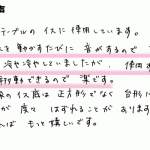 声
テーブルの イスに 使用しています。
を 動かすたびに 音がするので
冷や冷やしていましたが、使用
移動できるので 楽です。
のイスは 正方形でなく 台形に
が 度々 はずれることが あります
ば もっと嬉しいです。